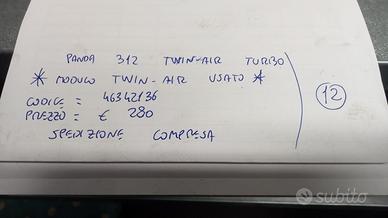 PANDA 312 TWIN-AIR TURBO
* MODULO TWIN-AIR USATO *
CODICE = 46342136
PREZZO = € 280
SPEDIZIONE COMPRESA
12
subito